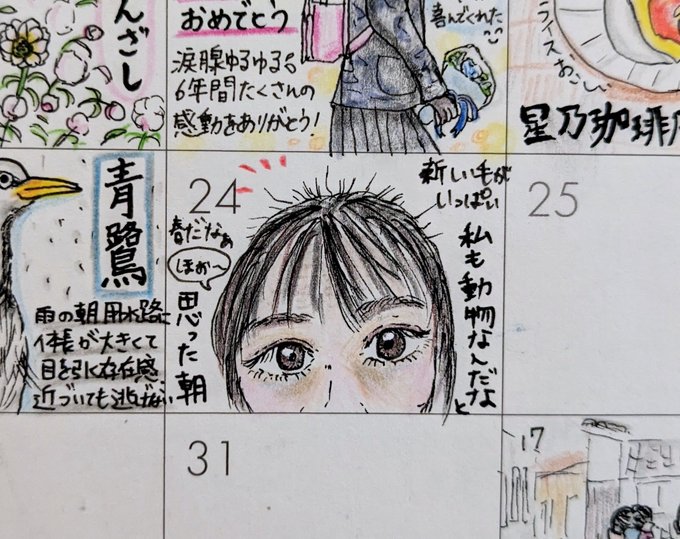 んざし
おめでとう
涙腺ゆるゆる。
6年間たくさんの
感動をありがとう!
喜んでくれた
ライスおいしい
星乃珈琲
青鷺
雨の朝 用水路に
体長が大きくて
目を引く存在感
近づいても逃げない
24
新しい毛が
いっぱい
私も動物なんだな
と
思った朝
春だなぁ
ほぉ〜
25
31
17